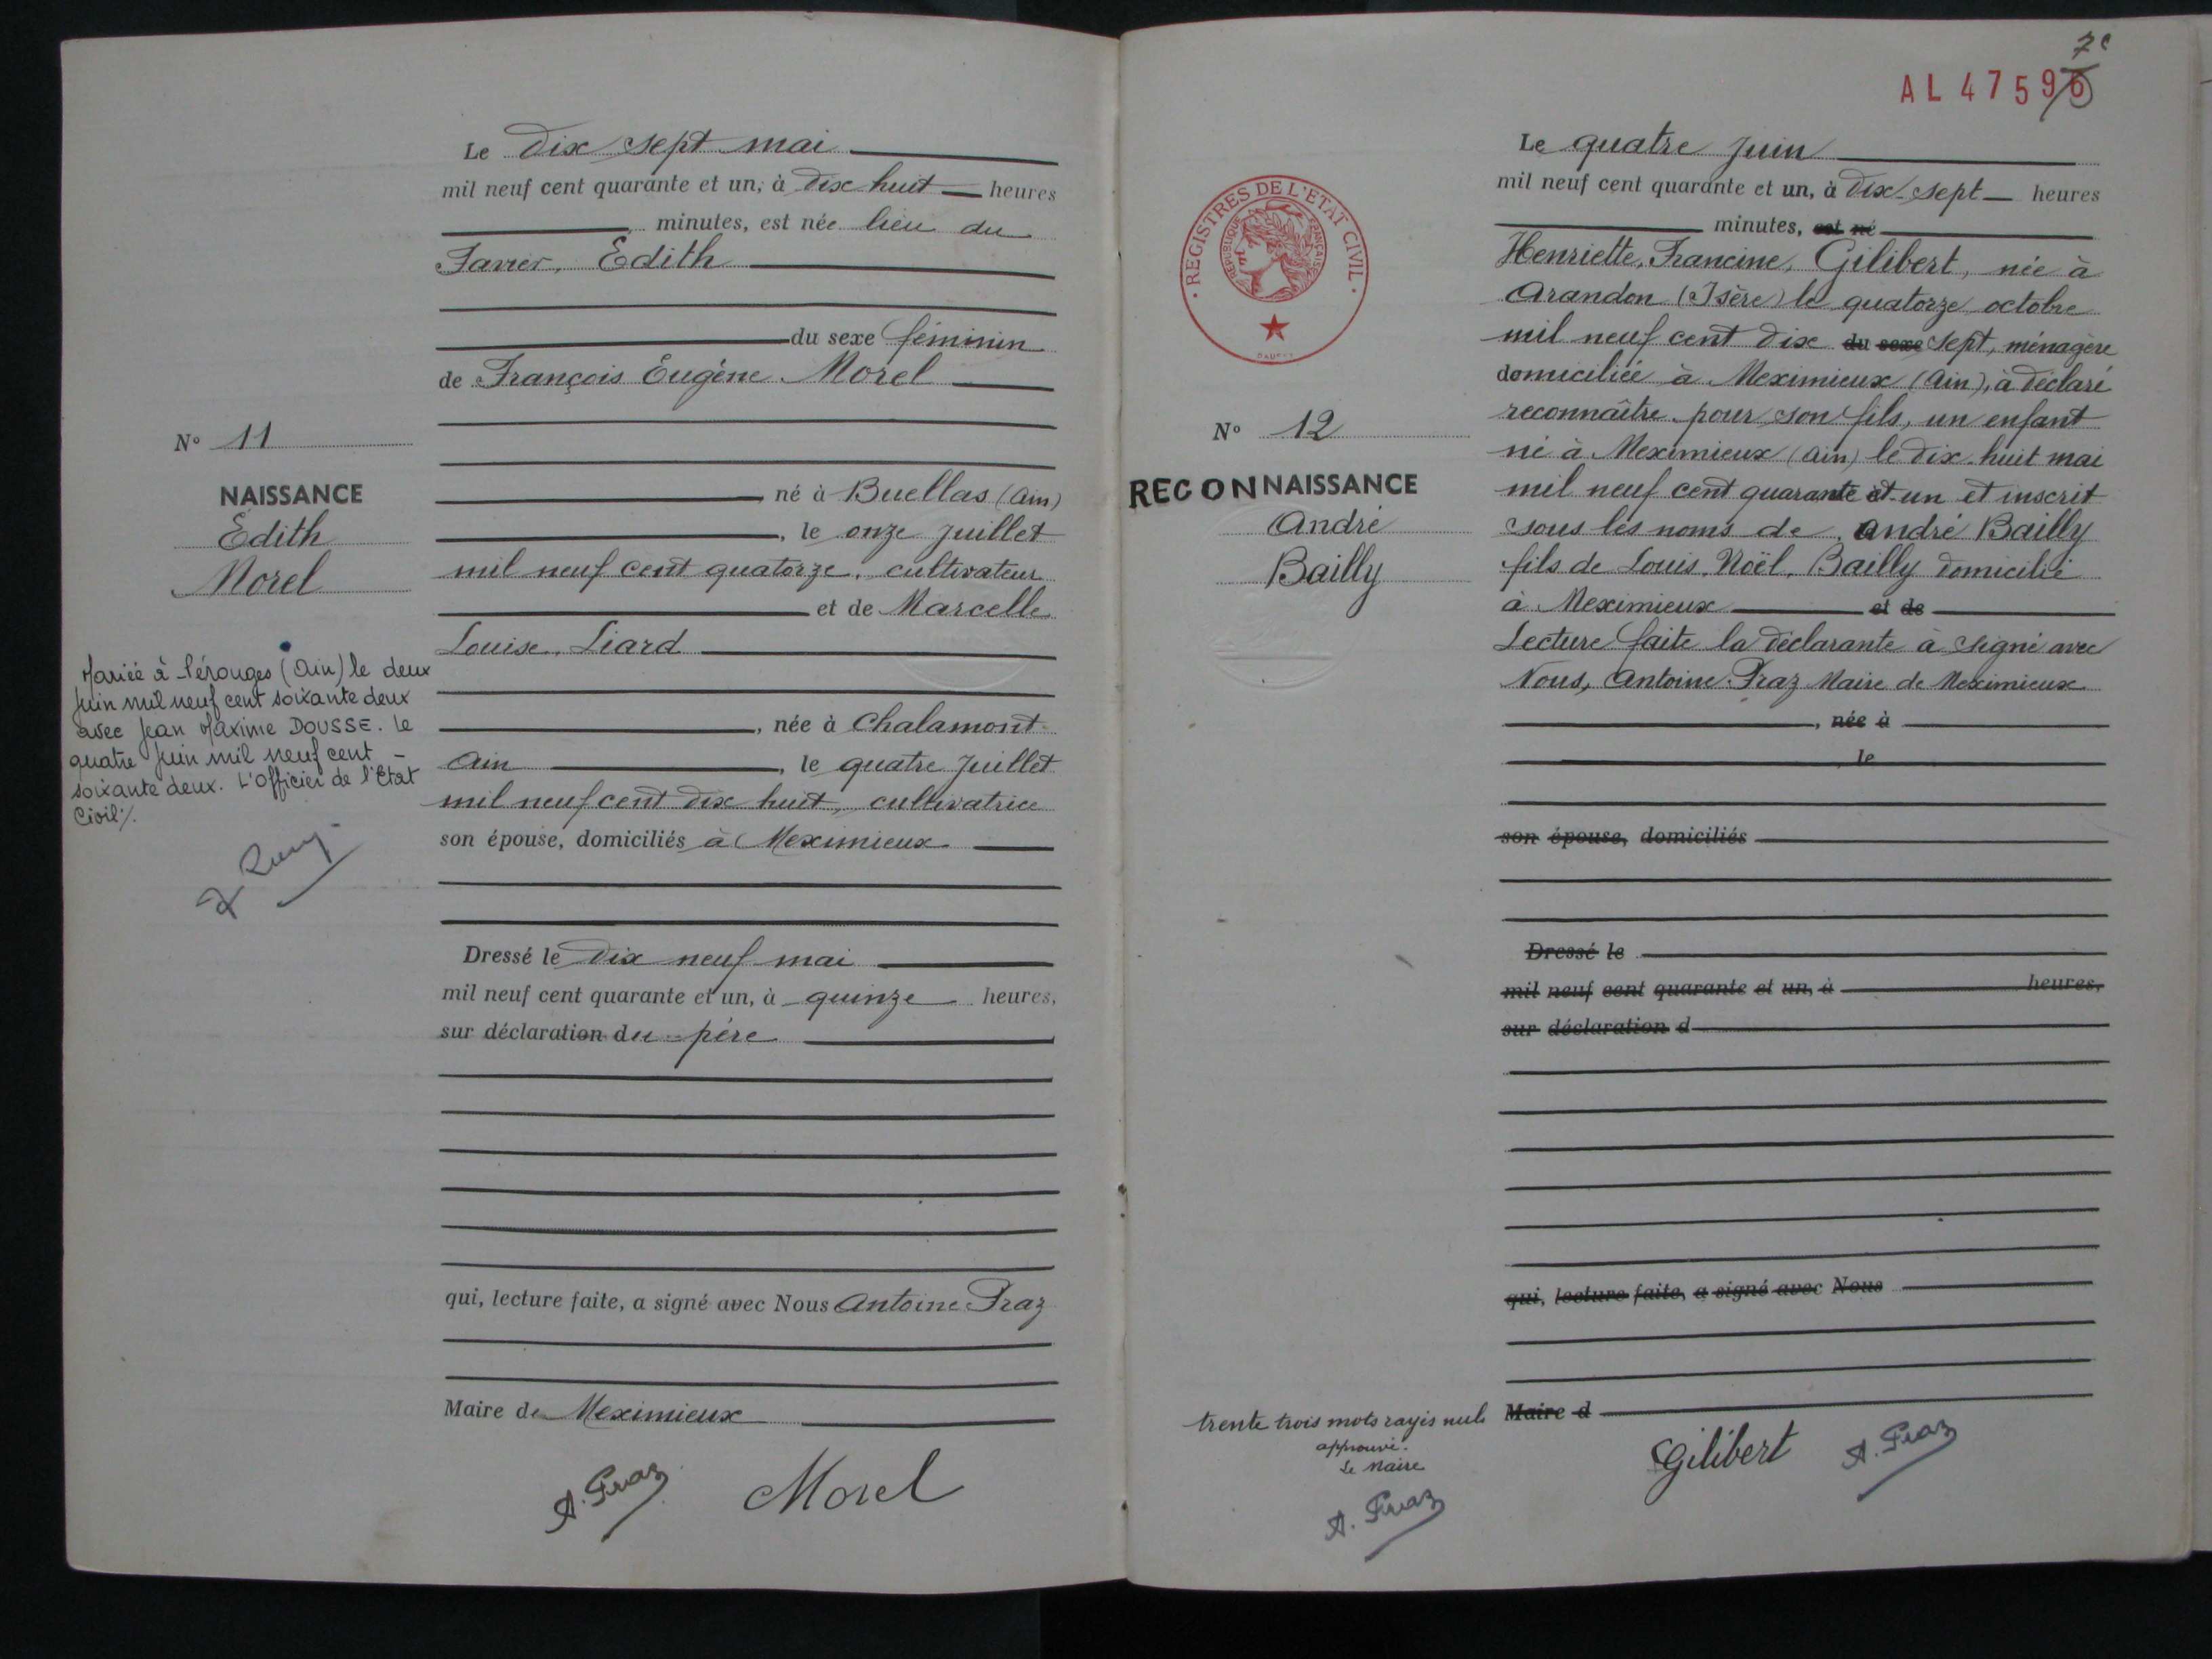 Le dix sept mai
mil neuf cent quarante et un, à dix huit heures
minutes, est née lieu du
Favier, Edith
du sexe féminin
de François Eugène Morel
N° 11
né à Buellas (Ain)
NAISSANCE
, le onze Juillet
Edith
mil neuf cent quatorze, cultivateur
Morel
et de Marcelle
Louise, Liard
Mariée à Pérouges (Ain) le deux
Juin mil neuf cent soixante deux
avec Jean Maxime DOUSSE. Le
quatre Juin mil neuf cent –
soixante deux. L'Officier de l'Etat
Civil %.
, née à Chalamont
Ain , le quatre Juillet
mil neuf cent dix huit, cultivatrice
son épouse, domiciliés à Meximieux
Dressé le dix neuf mai
mil neuf cent quarante et un, à quinze heures,
sur déclaration du père
qui, lecture faite, a signé avec Nous Antoine Praz
Maire de Meximieux
A. Praz Morel
7e
AL 47596
Le quatre Juin
mil neuf cent quarante et un, à dix-sept heures
minutes, est né
Henriette, Francine, Gilibert, née à
Arandon (Isère) le quatorze octobre
mil neuf cent dix du sexe sept, ménagère
domiciliée à Meximieux (Ain), à déclaré
reconnaître pour son fils, un enfant
né à Meximieux (Ain) le dix-huit mai
mil neuf cent quarante et un et inscrit
sous les noms de André Bailly
fils de Louis, Noël, Bailly domicilié
à Meximieux et de
Lecture faite la déclarante à signé avec
Nous, Antoine Praz Maire de Meximieux
, née à
le
son épouse, domiciliés
Dressé le
mil neuf cent quarante et un, à heures,
sur déclaration d
qui, lecture faite, a signé avec Nous
Maire d
REGISTRES DE L'ETAT CIVIL
REPUBLIQUE FRANÇAISE
N° 12
RECONNAISSANCE
André
Bailly
trente trois mots rayés nuls
approuvé.
Le Maire
A. Praz
Gilibert A. Praz